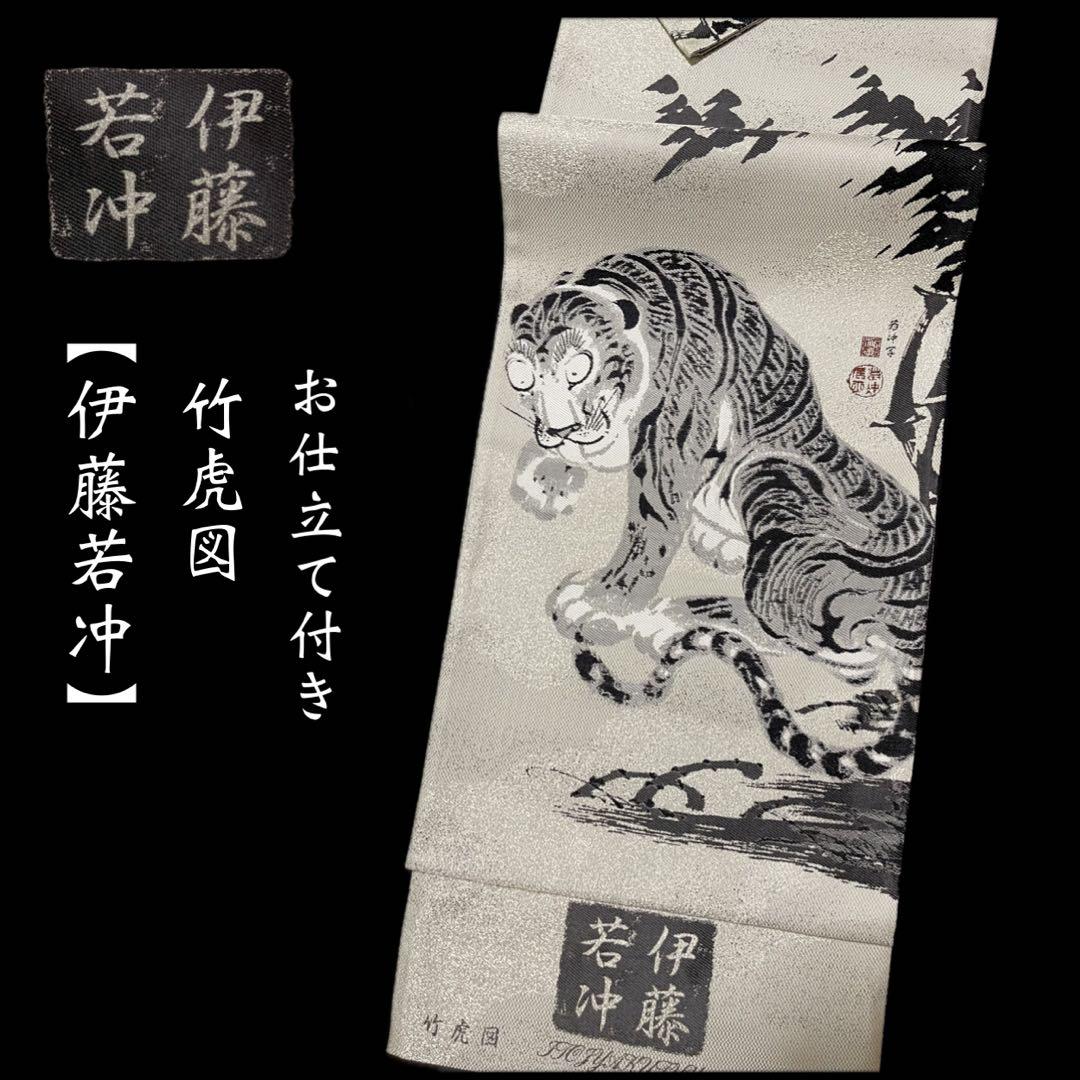 伊藤
若冲
お仕立て付き
竹虎図
【伊藤若冲】
若冲写
伊藤
若冲
竹虎図